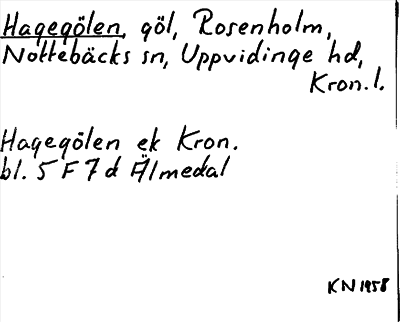 Hagegölen, göl, Rosenholm,
Nottebäcks sn, Uppvidinge hd,
Kron. l.
Hagegölen ek Kron.
bl. 5 F 7 d Älmedal
KN 1958